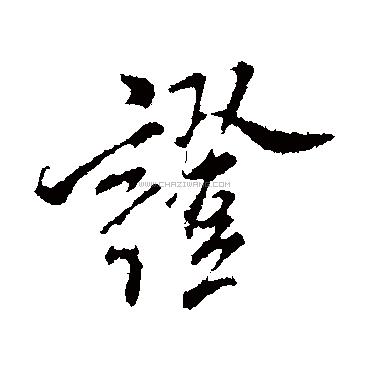 證
WWW.CHAZIWANG.COM